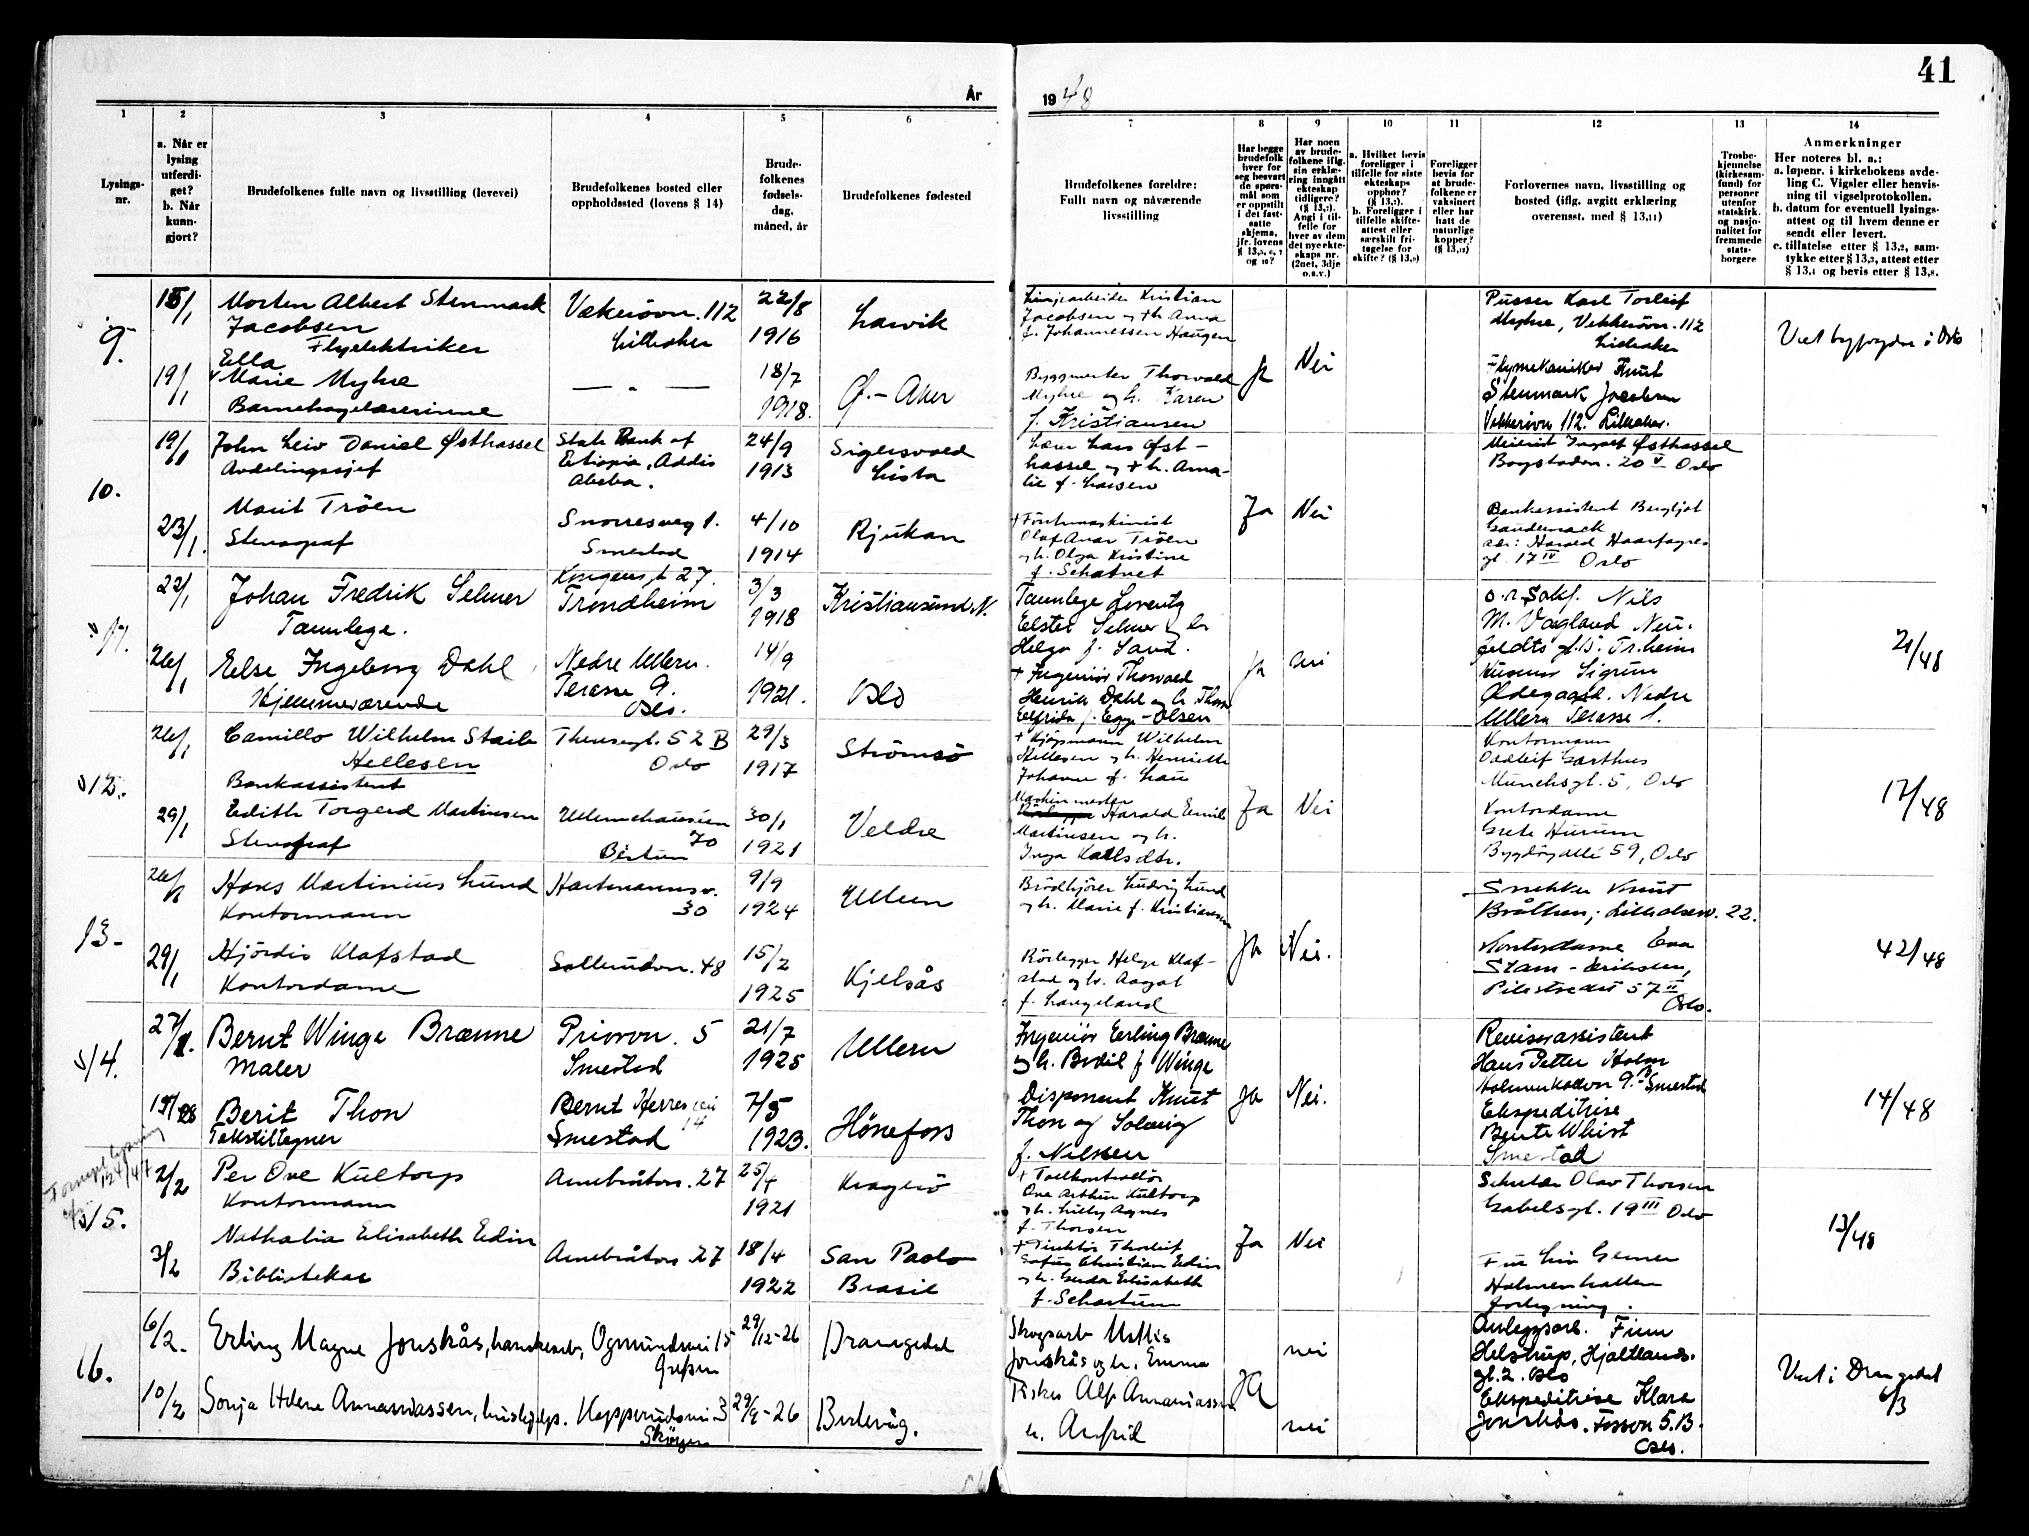 41
År
19 48
1
2
3
4
5
6
7
8
9
10
11
12
13
14
Lysings-
nr.
a. Når er
lysing
utferdi-
get?
b. Når
kunn-
gjort?
Brudefolkenes fulle navn og livsstilling (levevei)
Brudefolkenes bosted eller
oppholdssted (lovens § 14)
Brude-
folkenes
fødsels-
dag,
måned, år
Brudefolkenes fødested
Brudefolkenes foreldre:
Fullt navn og nåværende
livsstilling
Har begge
brudefolk
hver for
seg besvart
de spørs-
mål som
er oppstilt
i det fast-
satte
skjema,
jfr. lovens
Har noen
av brude-
folkene iflg.
sin erklæ-
ring inngått
ekteskap
tidligere?
Angi i til-
felle for
hver av dem
det nye ekte-
skaps nr.
(2net, 3dje
o.s.v.)
a. Hvilket bevis
foreligger i
tilfelle for siste
ekteskaps
opphør?
b. Foreligger i
tilfelle skifte-
attest eller
særskilt fri-
tagelse for
skifte?
Foreligger
bevis for
at brude-
folkene er
vaksinert
eller har
hatt de
naturlige
kopper?
Forlovernes navn, livsstilling og
bosted (iflg. avgitt erklæring
overensst. med § 13,11)
Trosbe-
kjennelse
(kirkesam-
fund) for
personer
utenfor
statskirk.
og nasjo-
nalitet for
fremmede
stats-
borgere
Anmerkninger
Her noteres bl. a.:
a. løpenr. i kirkebokens avde-
ling C. Vigsler eller henvis-
ning til vigselprotokollen.
b. datum for eventuell lysings-
attest og til hvem denne er
sendt eller levert.
c. tillatelse etter § 13,2, sam-
tykke etter § 13,3, attest etter
9.
Morten Albert Stenmark
Jacobsen
Flyelektriker
Vækerövn. 112
Lilleaker
22/8
1916
Larvik
Linjearbeider Kristian
Jacobsen og + h. Anna
f. Johannessen Haugen
Pusser Karl Torleif
Myhre, Vekkerövn. 112
Lilleaker
19/1
Ella
Marie Myhre
Barnehagelærerinne
— " —
18/7
1918.
Ø.- Aker
Byggmester Thorvald
Myhre og h. Karen
f. Kristiansen
Ja
Nei
Flymekaniker Knut
Stenmark Jacobsen
Vekkerövn 112. Lilleaker.
10.
19/1
John Leiv Daniel Østhassel
Avdelingssjef
State Bank of
Etiopia, Addis
Abeba.
24/9
1913
Sigersvold
Lista
Lærer Lars Øst-
hassel og + h. Ama-
lie f. Larsen
Ingolf Østhassel
Bogstadvn. 20 V Oslo
23/1.
Marit Tröen
Stenograf
Snorresveg 1.
Smestad
4/10
1914
Rjukan
Olaf Anar Tröen
og h. Olga Kristine
f. Schatvet
Ja
Nei
Bankassistent Bergljot
adr: Harald Haarfagres
gt. 17 IV Oslo
11.
22/1
Johan Fredrik Selmer
Tannlege.
Kongens gt 27.
Trondheim
3/3
1918
Kristiansund N.
Tannlege Lorentz
Elster Selmer og h
Helga f. Sand.
o.r. sakf. Nils
M. Vagland Neu-
feldts gt. Tr.heim
26/1
Else Ingeborg Dahl
Hjemmeværende
Nedre Ullern.
Terasse 9.
Oslo.
14/9
1921.
Oslo
+ Ingeniör Thorvald
Henrik Dahl og h. Thora
Elfrida f. Egge-Olsen
Ja
nei
Sigrun
Ødegaard. Nedre
Ullern Terasse 1.
21/48
12.
26/1
Camillo Wilhelm Staib
Hellesen
Bankassistent
Theresegt. 52 B
Oslo
29/3
1917
Strömsö
+ Kjöpmann Wilhelm
Hellesen og h. Henriette
Johanne f. Lau
Kontormann
Oddleif Garthus
Munchsgt. 5, Oslo
29/1
Edith Torgerd Martinsen
Stenograf
Ullernchausseen
70
Bestum
30/1
1921
Veldre
Maskinmester
Harald Emil
Martinsen og h.
Inga Karlsdtr.
Ja
Nei
Kontordame
Grete Hurum
Bygdöy allé 59, Oslo
17/48
13-
26/1
Hans Martinius Lund
Kontormann
Hartmannsv.
30
9/9
1924
Ullern
Brödkjörer Ludvig Lund
og h. Marie f. Kristiansen
Snekker Knut
Bråthen, Lilleakerv. 22.
29/1
Hjördis Klafstad
Kontordame
Sollerudvn. 48
15/2
1925
Kjelsås
Rörlegger Helge Klaf-
stad og h. Aagot
f. Langeland
Ja
Nei.
Kontordame Eva
Stam-Eriksen,
Pilestredet 57 II
Oslo.
42/48
14.
27/1.
Bernt Winge Brænne
Maler
Priorvn. 5
Smestad
21/7
1925
Ullern
Ingeniör Erling Brænne
og h. Bodil f Winge
Revisorassistent
Hans Petter Holm
Holmenkollvn 9. B Smestad
Berit Thon
Tekstiltegner
Bernt Herres vei
14
Smestad
7/5
1923.
Hönefoss
Disponent Knut
Thon og Solveig
f. Nilsen
Ja
Nei.
Ekspeditrise
Bente Whist
Smestad
14/48
Fornyet lysning
124/47
15.
2/2
Per Ove Kultorp
Kontormann
Arnebråtvn. 27
25/4
1921
Kragerö
+ Tollkontrollör
Ove Arthur Kultorp
og h. Lilly Agnes
f. Thorsen
Olav Thorsen
Gabelsgt. 19 III Oslo
3/2
Nathalia Elisabeth Edin
Bibliotekar
Arnebråtvn. 27
18/4
1922
San Paolo
Brasil
+ Direktör Thorleif
Sofus Christian Edin
og h. Gerda Elisabeth
f. Schartum
Ja
Nei
Fru Liv Gerner
Holmenkollen
forlegning.
13/48
16.
6/2.
Erling Magne Jonskås, hanskearb.
Ogmundsvei 15
29/12-26
Drangedal
Skogsarb Mathis
Jonskås og h. Emma
nei
Anleggsarb. Finn
Helstrup, Hjaltlands-
gt. 2. Oslo
10/2
Sonja Helene Annaniassen, hushjelp.
Kopperudsvei 3
Sköyen
29/9-26
Berlevåg.
Fisker Alf Annaniassen
h. Anfrid
Ja
nei
Ekspeditrise Klara
Jonskås. Fossvn 5.B.
Oslo.
Viet i Drangedal
6/3